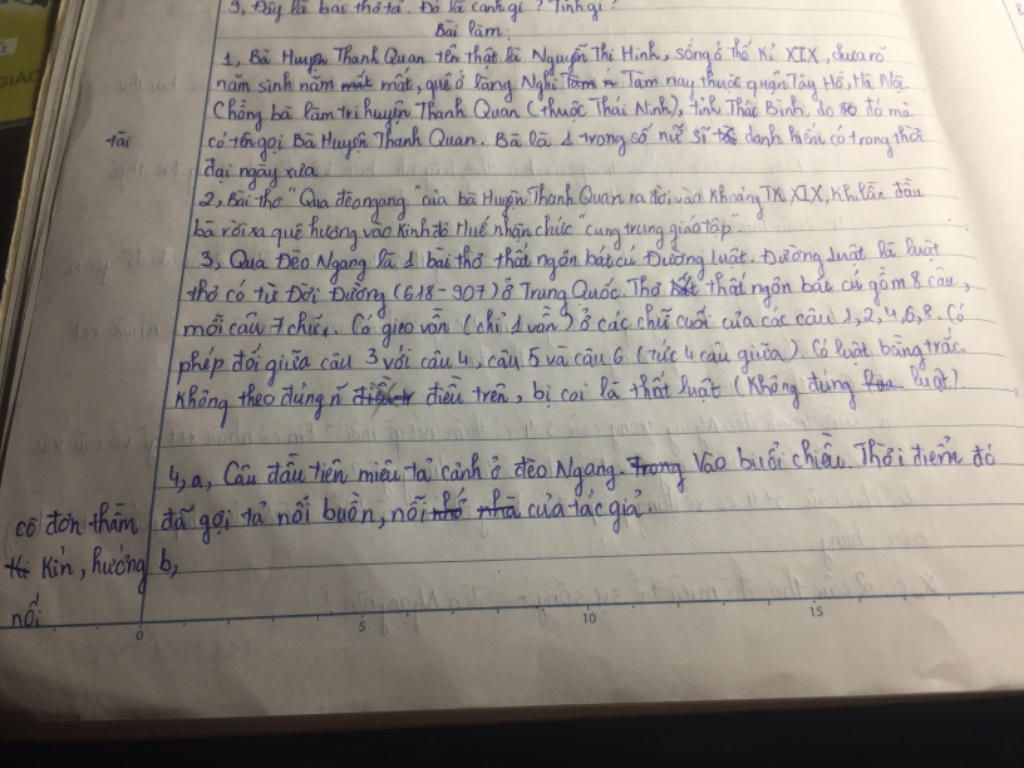 9, Đây là bài thơ tả. Đó là cảnh gì? Tình gì?
Bài làm:
1, Bà Huyện Thanh Quan tên thật là Nguyễn Thị Hinh, sống ở thế kỉ XIX, chưa rõ
năm sinh năm mất mất, quê ở làng Nghi Tàm Tàm nay thuộc quận Tây Hồ, Hà Nội.
Chồng bà làm tri huyện Thanh Quan (thuộc Thái Ninh), tỉnh Thái Bình, do đó mà
có tên gọi Bà Huyện Thanh Quan. Bà là 1 trong số nữ sĩ tài danh hiếm có trong thời
tài
đại ngày xưa.
2, Bài thơ "Qua đèo ngang" của bà Huyện Thanh Quan ra đời vào khoảng TK XIX, khi lần đầu
bà rời xa quê hương vào kinh đô Huế nhận chức "cung trung giáo tập".
3, Qua Đèo Ngang là 1 bài thơ thất ngôn bát cú Đường luật. Đường luật là luật
thơ có từ Đời Đường (618-907) ở Trung Quốc. Thơ thất ngôn bát cú gồm 8 câu,
mỗi câu 7 chữ. Có gieo vần (chỉ 1 vần) ở các chữ cuối của các câu 1,2,4,6,8. Có
phép đối giữa câu 3 với câu 4, câu 5 và câu 6 (tức 4 câu giữa). Có luật bằng trắc.
Không theo đúng n~ điều trên, bị coi là thất luật (không đúng luật).
4, a, Câu đầu tiên miêu tả cảnh ở đèo Ngang Trong Vào buổi chiều. Thời điểm đó
đã gợi tả nỗi buồn, nỗi nhớ nhà của tác giả.
cô đơn thầm
kín, hướng
nội
b,
0 5 10 15